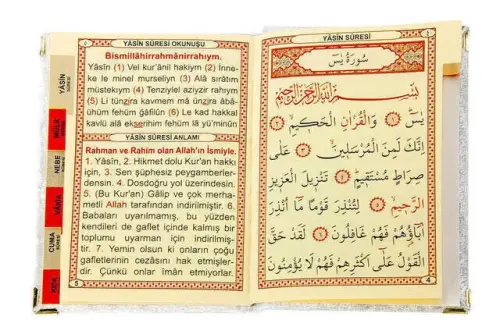 YÂSİN SÛRESİ
سُورَةُ يٰسٓ
بِسْمِ اللّٰهِ الرَّحْمٰنِ الرَّحِيمِ
يٰسٓ ﴿١﴾ وَالْقُرْاٰنِ الْحَكِيمِ ﴿٢﴾
اِنَّكَ لَمِنَ الْمُرْسَلِينَ ﴿٣﴾ عَلٰى
صِرَاطٍ مُسْتَقِيمٍ ﴿٤﴾ تَنْزِيلَ الْعَزِيزِ
الرَّحِيمِ ﴿٥﴾ لِتُنْذِرَ قَوْمًا مَٓا اُنْذِرَ
اٰبَٓاؤُهُمْ فَهُمْ غَافِلُونَ ﴿٦﴾ لَقَدْ حَقَّ
الْقَوْلُ عَلٰٓى اَكْثَرِهِمْ فَهُمْ لَا يُؤْمِنُونَ
4
YÂSİN SÛRESİ OKUNUŞU
Bismillâhirrahmânirrahıym.
Yâsîn (1) Vel kur'ânil hakiym (2) İnne-
ke le minel murseliyn (3) Alâ sırâtım
müstekıym (4) Tenziylel aziyzir rahıym
(5) Li tünzira kavmem mâ ünzira âbâ-
ühüm fehüm ğâfilûn (6) Le kad hakkal
kavlü alâ ekserihim fehüm lâ yü'minûn
YÂSİN SÛRESİ ANLAMI
Rahman ve Rahim olan Allah'ın İsmiyle.
1. Yâsîn, 2. Hikmet dolu Kur'an hakkı
için, 3. Sen şüphesiz peygamberler-
densin. 4. Dosdoğru yol üzerindesin.
5. (Bu Kur'an) Gâlip ve çok merha-
metli Allah tarafından indirilmiştir. 6.
Babaları uyarılmamış, bu yüzden
kendileri de gaflet içinde kalmış bir
toplumu uyarman için indirilmiş-
tir. 7. Yemin olsun ki onların çoğu
gafletlerinin cezasını hak etmişler-
dir. Çünkü onlar iman etmiyorlar.
5
YÂSİN
MÜLK
NEBE
VÂKIA
CUMA